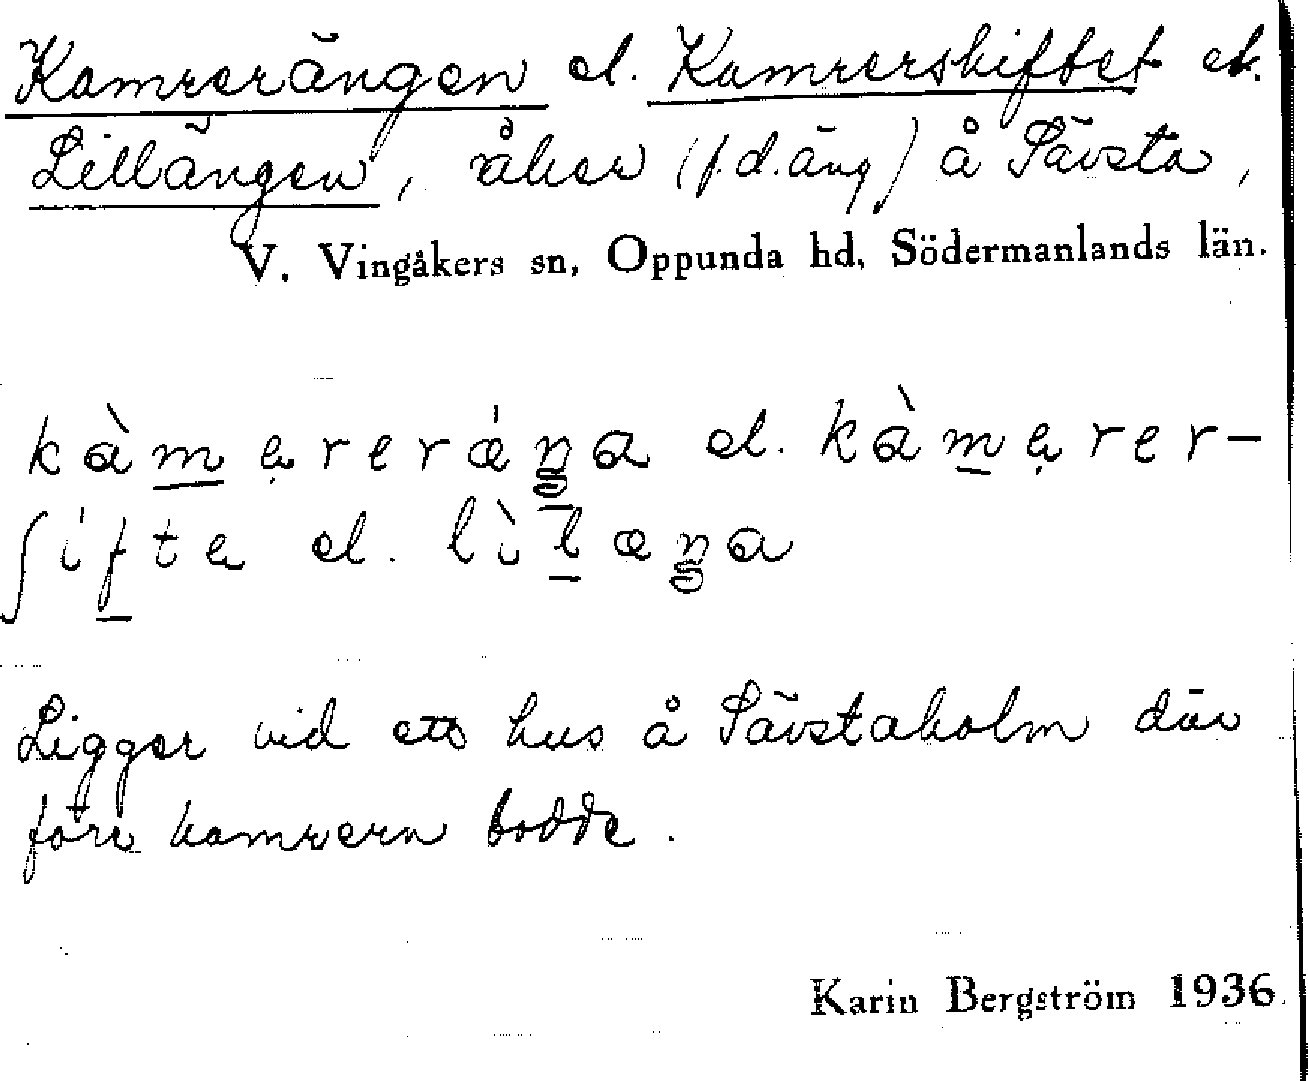 Kamrerängen el. Kamrerskiftet el.
Lillängen, åker (f.d. äng) å Sävsta,
V. Vingåkers sn, Oppunda hd, Södermanlands län.
kàmạrerǽŋa el. kàmạrer-
ʃífta el. lìlæŋa
Ligger vid ett hus å Sävstaholm där
förr kamrern bodde.
Karin Bergström 1936